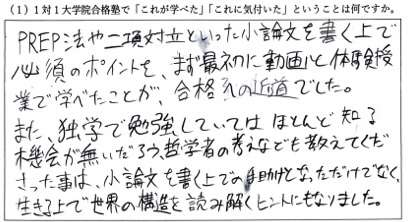 (1) 1対1大学院合格塾で「これが学べた」「これに気付いた」ということは何ですか。
PREP法や二項対立といった小論文を書く上で
必須のポイントを、まず最初に動画と体験授
業で学べたことが、合格への近道でした。
また、独学で勉強していてはほとんど知る
機会が無いだろう、哲学者の考えなども教えてくだ
さった事は、小論文を書く上での手助けとなっただけでなく、
生きる上で世界の構造を読み解くヒントにもなりました。